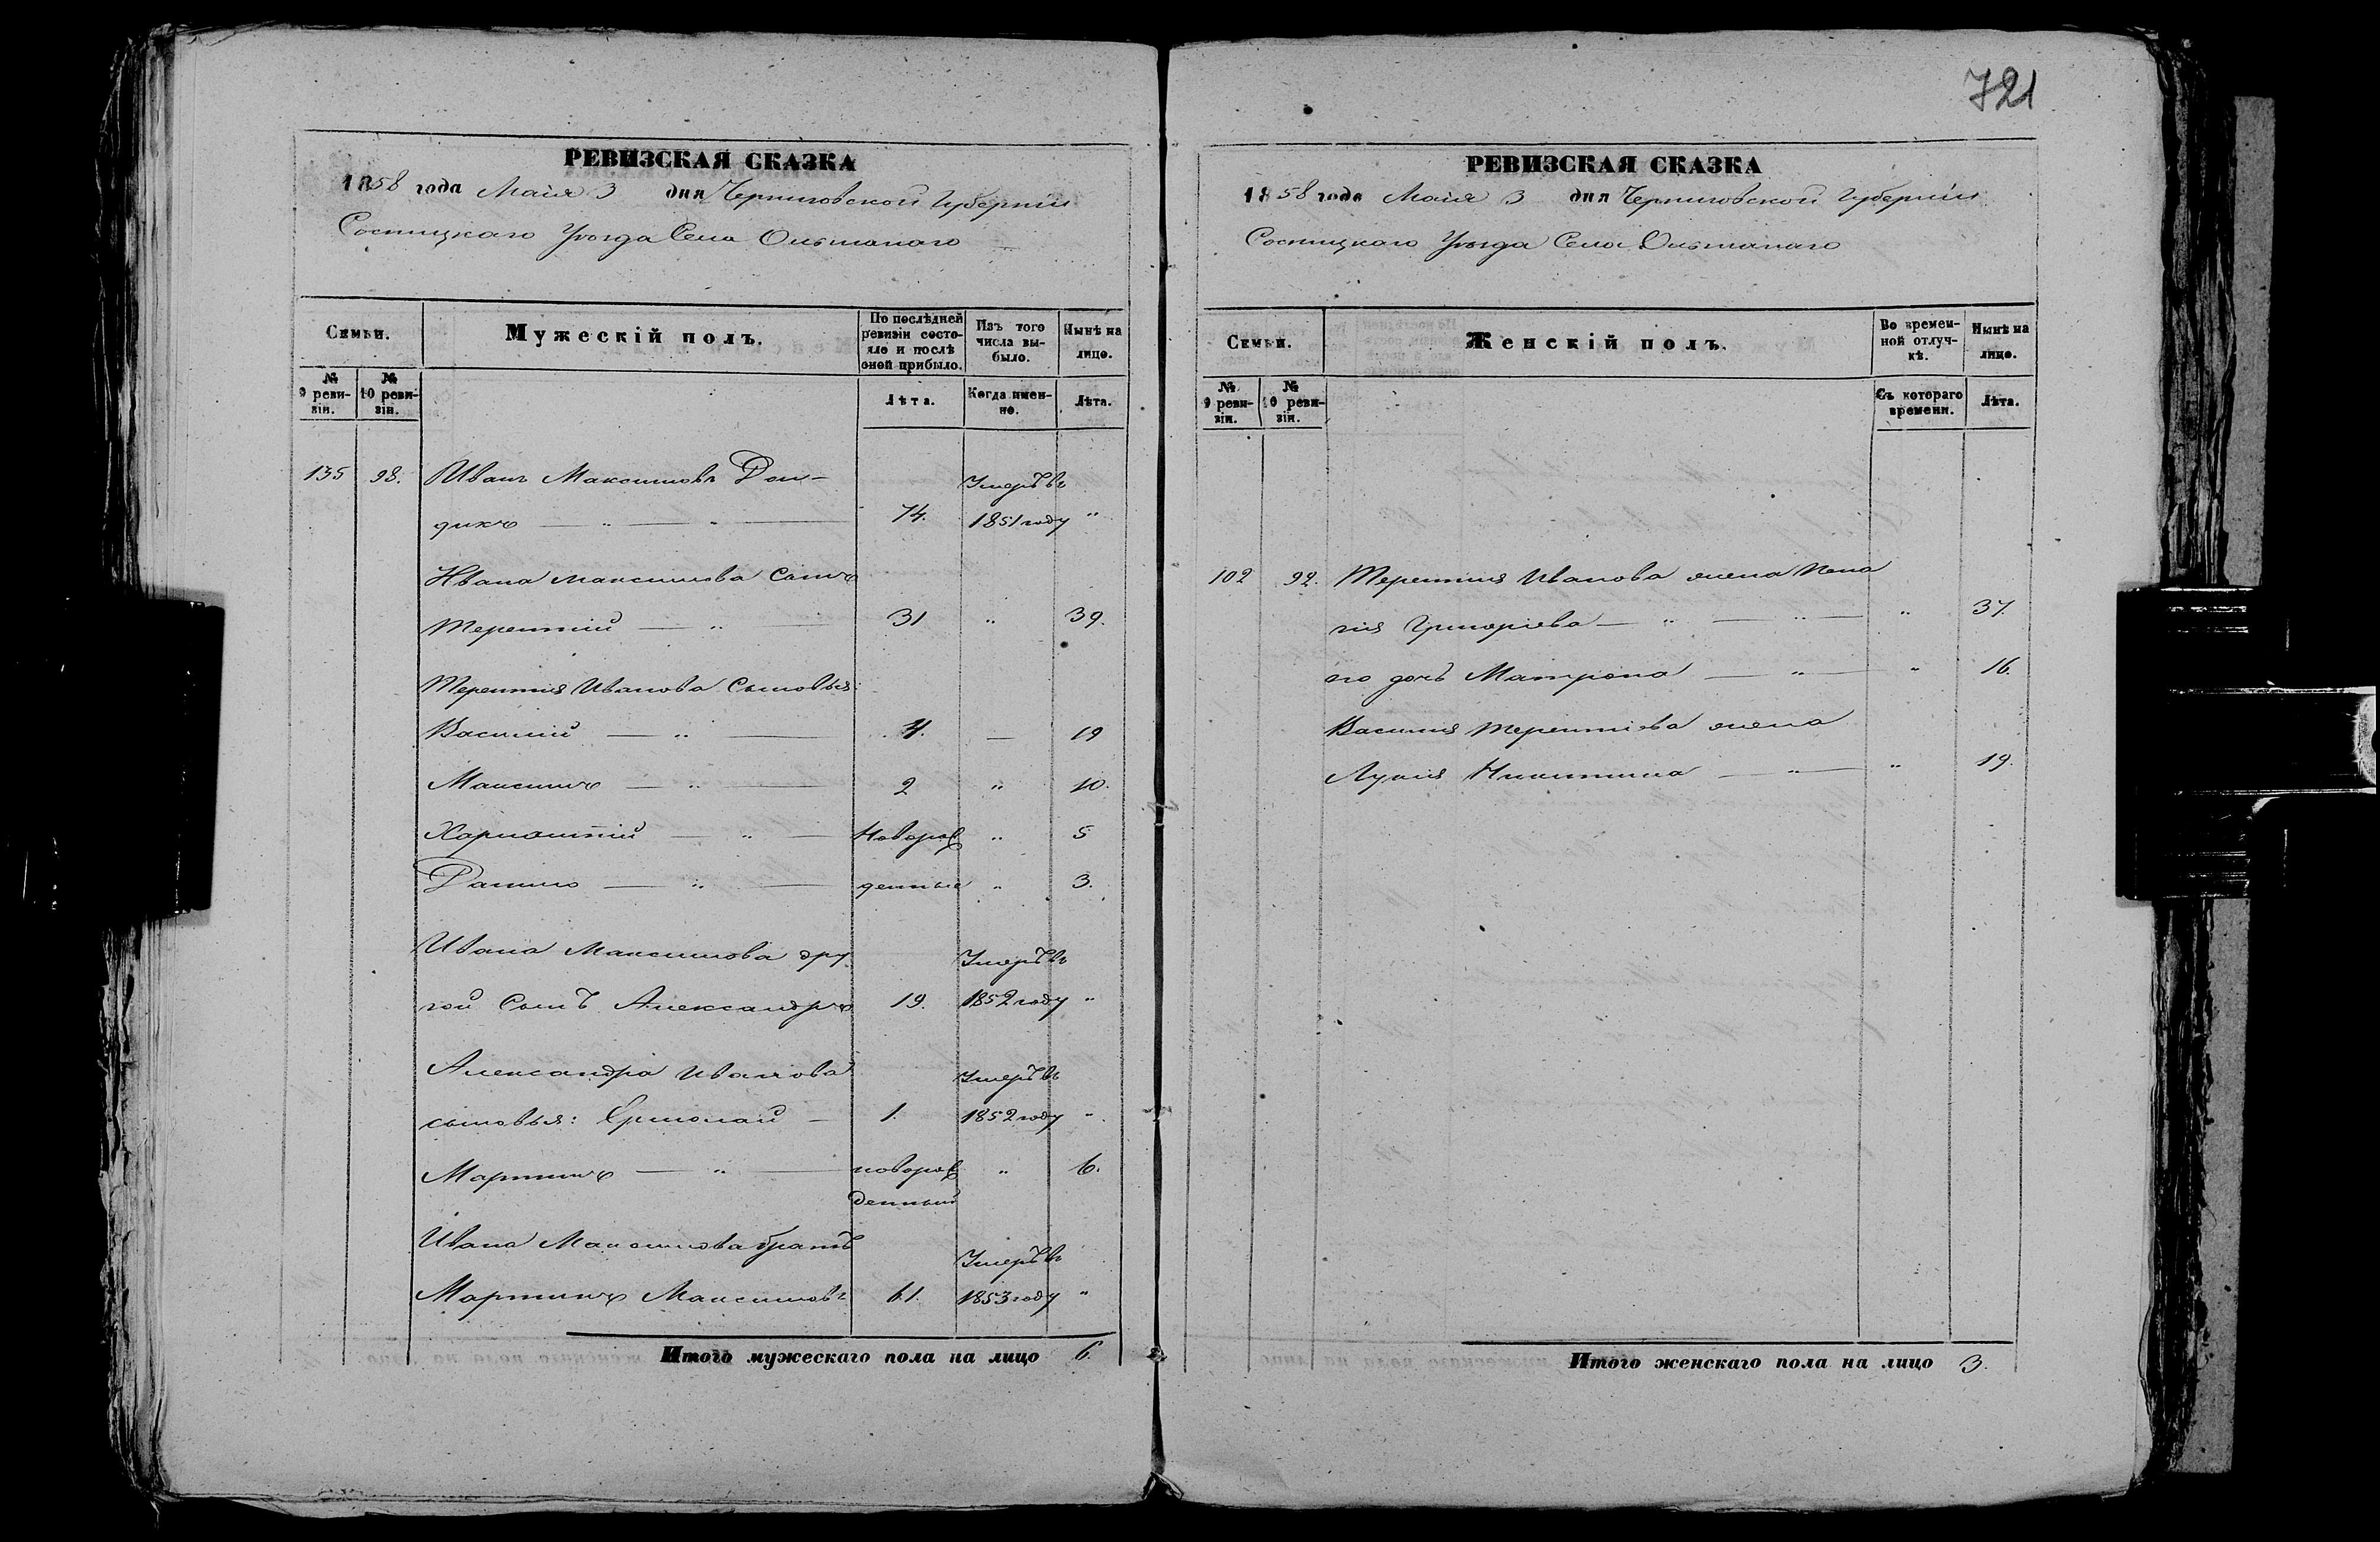 721
РЕВИЗСКАЯ СКАЗКА
1858 года Маія 3 дня Черниговской Губерніи
Сосницкаго Уѣзда Села Ольшанаго
Семьи.
Мужескій полъ.
По послѣдней ревизіи состояло и послѣ оной прибыло.
Изъ того числа выбыло.
Нынѣ на лицо.
№ 9 ревизіи.
№ 10 ревизіи.
Лѣта.
Когда именно.
Лѣта.
135 98. Иванъ Максимовъ Умеръ въ
дикъ — „ — „ — 74. 1851 году „
Ивана Максимова Сынъ
Терентій — „ — 31 „ 39.
Терентія Иванова Сыновья
Василій — „ — — 19
Максимъ — „ — 2 „ 10.
Харлампій — „ — Новорож „ 5
Данило — „ — денные „ 3.
Ивана Максимова дру Умеръ въ
гой Сынъ Александръ 19. 1852 году „
Александра Иванова Умеръ въ
сыновья: Ермолай — 1. 1852 году „
Мартинъ — „ — новорож „ 6.
денный
Ивана Максимова братъ Умеръ въ
Мартинъ Максимовъ 61. 1853 году „
Итого мужескаго пола на лицо 6.
РЕВИЗСКАЯ СКАЗКА
1858 года Маія 3 дня Черниговской Губерніи
Сосницкаго Уѣзда Села Ольшанаго
Семьи.
Женскій полъ.
Во временной отлучкѣ.
Нынѣ на лицо.
№ 9 ревизіи.
№ 10 ревизіи.
Съ котораго времени.
Лѣта.
102 92. Терентія Иванова жена Пела
гія Григоріева — „ — „ — „ 37.
его дочь Матрона — „ — „ 16.
Василія Терентіева жена
Лукія Никитина — „ — „ 19.
Итого женскаго пола на лицо 3.